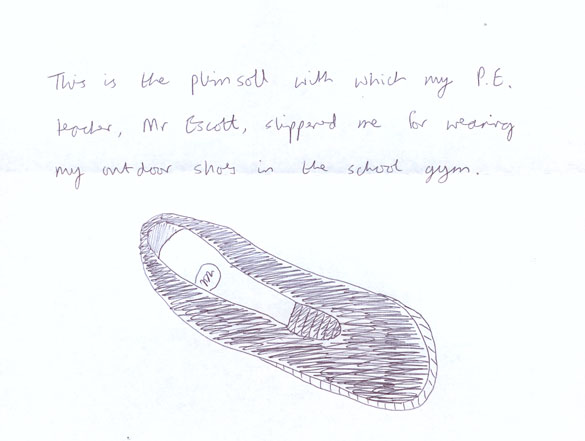 This is the plimsoll with which my P.E.
teacher, Mr Escott, slippered me for wearing
my outdoor shoes in the school gym.